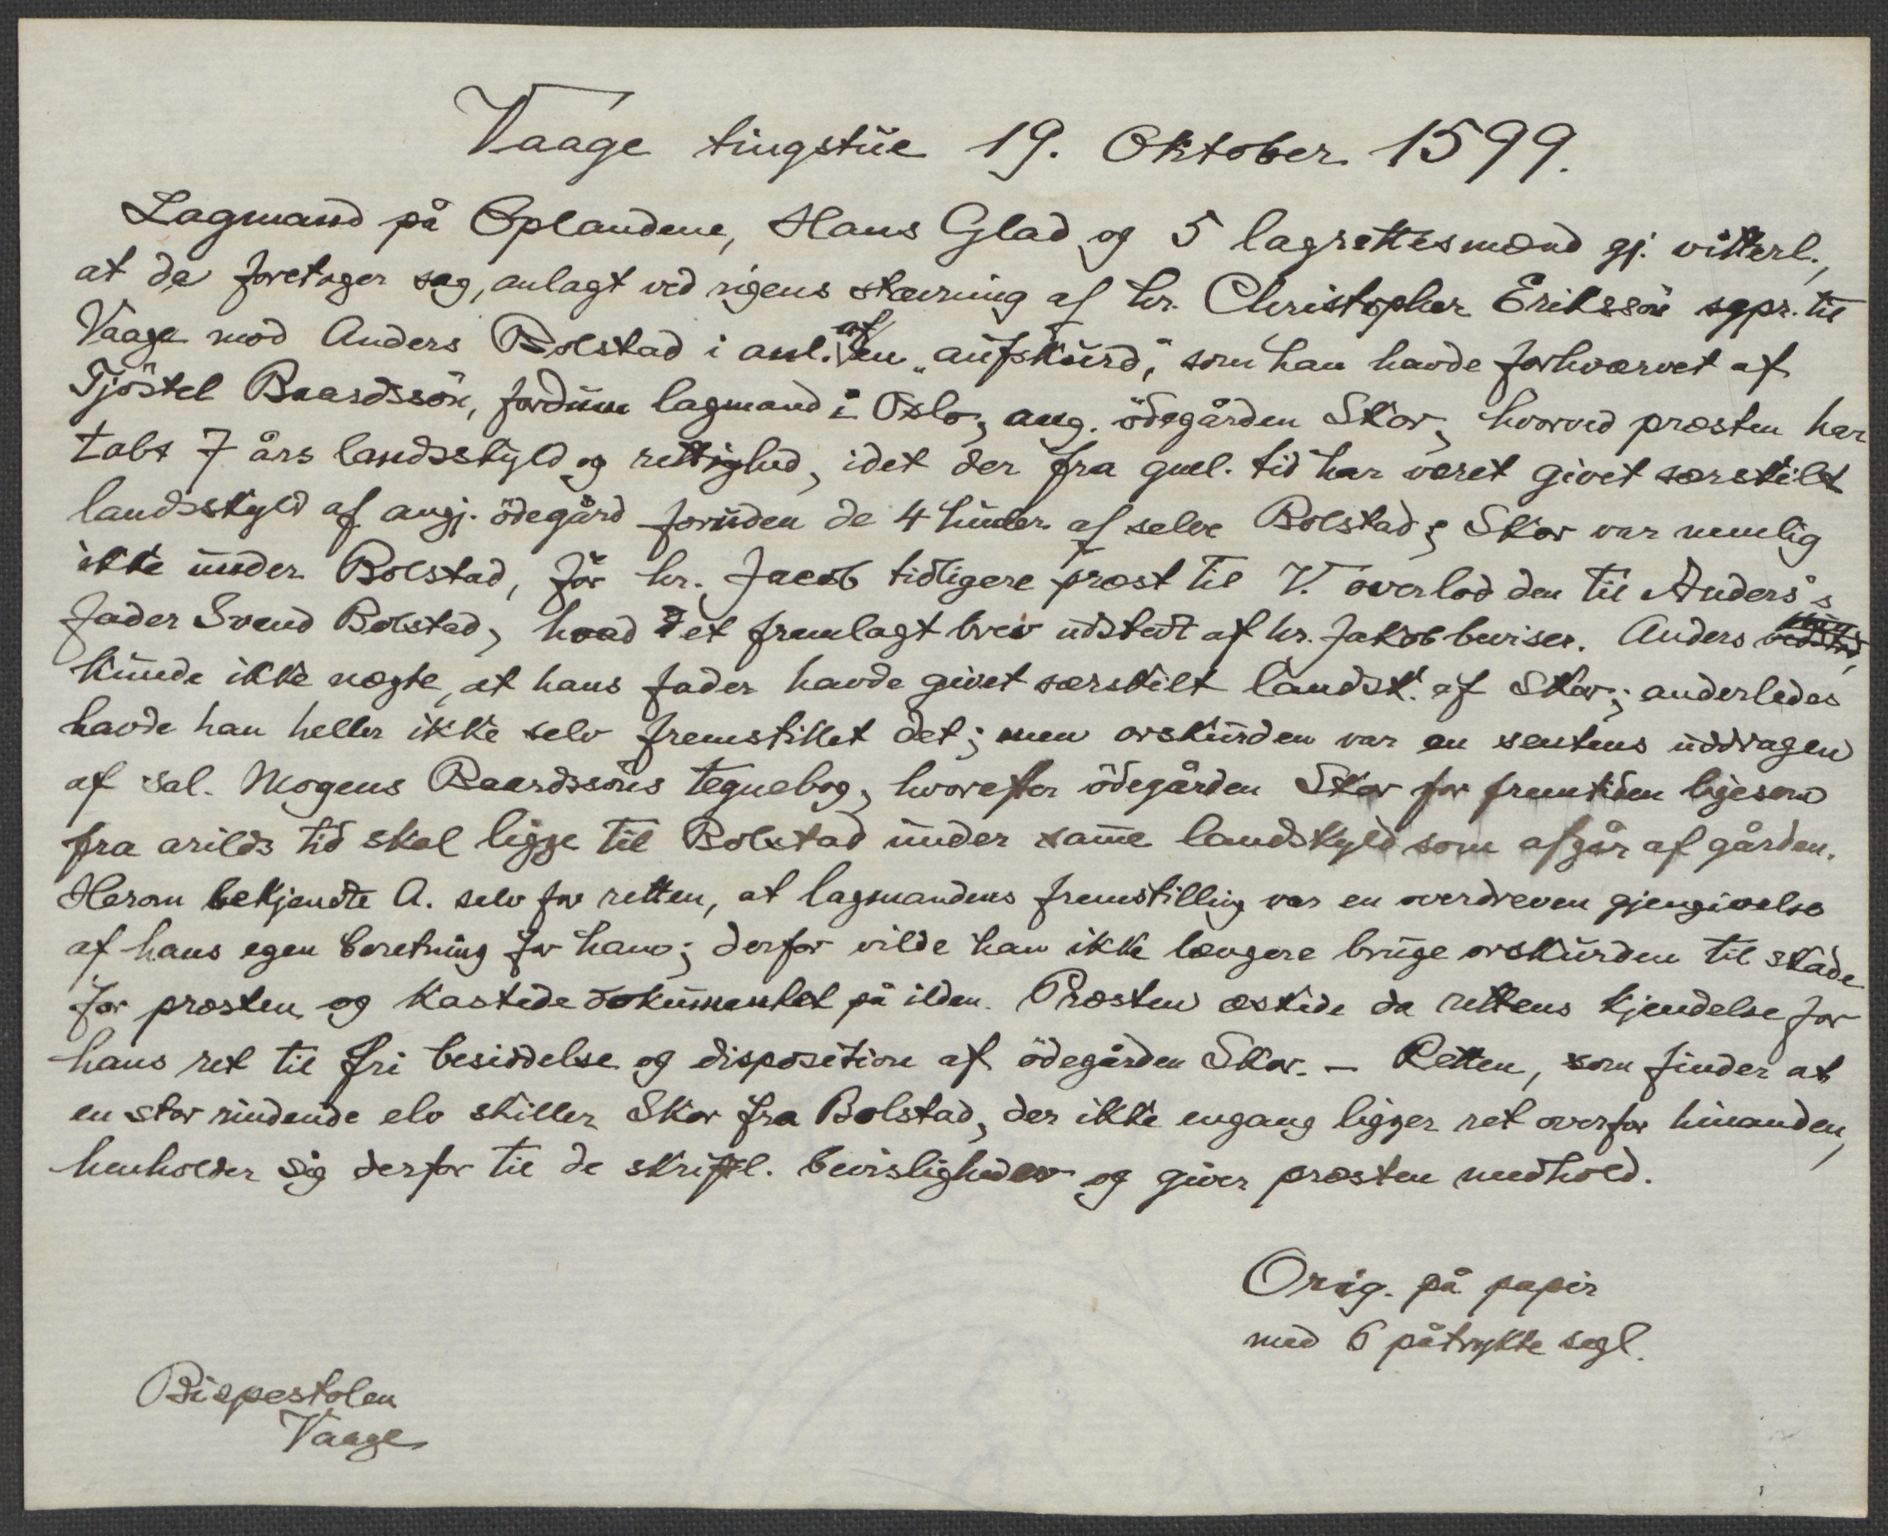 Vaage tingstue 19. Oktober 1599.
Lagmand på Oplandene, Hans Glad og 5 lagrettesmænd gj. vitterl.,
at de foretager sag, anlagt ved rigens stævning af hr. Christopher Erikssön sgpr. til
Vaage mod Anders Bolstad i anl. af en "aufskurd," som han havde forhværvet af
Tjöstel Baardssön, fordum lagmand i Oslo, ang. ödegården Skor, hvorved præsten har
tabt 7 års landsskyld og rettighed, idet der fra gml. tid har været givet særskilt
landsskyld af angj. ödegård foruden de 4 huder af selve Bolstad; Skor var nemlig
ikke under Bolstad, för hr. Jacob tidligere præst til V. overlod den til Anders's
fader Svend Bolstad, hvad det fremlagt brev udstedt af hr. Jakob beviser. Anders
kunde ikke nægte, at hans fader havde givet særskilt landsk. af Skor; anderledes
havde han heller ikke selv fremstillet det; men orskurden var en sentens uddragen
af sal. Mogens Baardssöns tegnebog, hvorefter ödegården Skor for fremtiden ligesom
fra arilds tid skal ligge til Bolstad under samme landskyld som afgår af gården.
Herom bekjendte A. selv for retten, at lagmandens fremstilling var en overdreven gjengivelse
af hans egen beretning for ham; derfor vilde han ikke længere bruge orskurden til skade
for præsten og kastede dokumentet på ilden. Præsten æskede da rettens kjendelse for
hans ret til fri besiddelse og disposition af ödegården Skor. — Retten, som finder at
en stor rindende elv skiller Skor fra Bolstad, der ikke engang ligger ret overfor hinanden,
henholder sig derfor til de skriftl. bevisligheder og giver præsten medhold.
Orig. på papir
med 6 påtrykte segl.
Bispestolen
Vaage